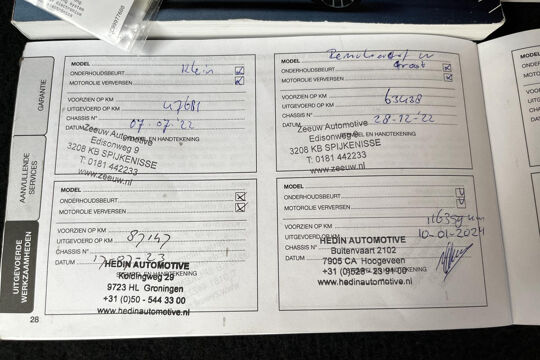 GARANTIE
AANVULLENDE SERVICES
UITGEVOERDE WERKZAAMHEDEN
MODEL
ONDERHOUDSBEURT Klein
MOTOROLIE VERVERSEN
VOORZIEN OP KM
UITGEVOERD OP KM 47681
CHASSIS N°
DATUM 07-07-'22
STEMPEL EN HANDTEKENING
Zeeuw Automotive
Edisonweg 9
3208 KB SPIJKENISSE
T: 0181 442233
www.zeeuw.nl
MODEL
ONDERHOUDSBEURT Groot
MOTOROLIE VERVERSEN
VOORZIEN OP KM
UITGEVOERD OP KM 63428
CHASSIS N°
DATUM 28-12-'22
STEMPEL EN HANDTEKENING
Zeeuw Automotive
Edisonweg 9
3208 KB SPIJKENISSE
T: 0181 442233
www.zeeuw.nl
MODEL
ONDERHOUDSBEURT
MOTOROLIE VERVERSEN
VOORZIEN OP KM
UITGEVOERD OP KM 87147
CHASSIS N°
DATUM
STEMPEL EN HANDTEKENING
HEDIN AUTOMOTIVE
Kolkingweg 29
9723 HL Groningen
+31 (0)50 - 544 33 00
www.hedinautomotive.nl
MODEL
ONDERHOUDSBEURT
MOTOROLIE VERVERSEN
VOORZIEN OP KM
UITGEVOERD OP KM
CHASSIS N° 10-01-2024
DATUM
HEDIN AUTOMOTIVE
Buitenvaart 2102
7905 CA Hoogeveen
+31 (0)528 - 23 91 00
www.hedinautomotive.nl
28